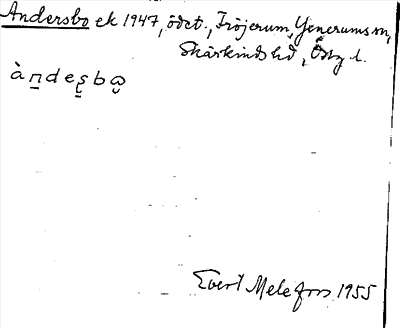 Andersbo ek 1947, ödet., Fröjerum, Yxnerums sn,
Skärkinds hd, Östg l.
àn̠des̠bω̮
Evert Melefors 1955